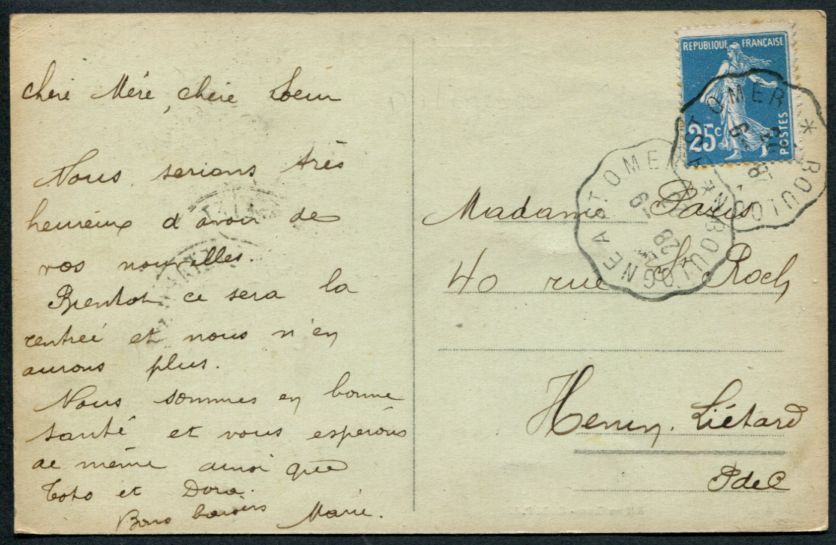 chère Mère, chère Soeur
Nous serions très
heureux d'avoir de
vos nouvelles.
Bientot ce sera la
rentrée et nous n'en
aurons plus.
Nous sommes en bonne
santé et vous esperons
de même ainsi que
Toto et Dora.
Bons baisers Marie.
REPUBLIQUE FRANÇAISE
25c
POSTES
ST OMER * BOULOGNE
ST OMER A BOULOGNE
28
Madame Paris
40 rue St Roch
Henin-Liétard
P de C